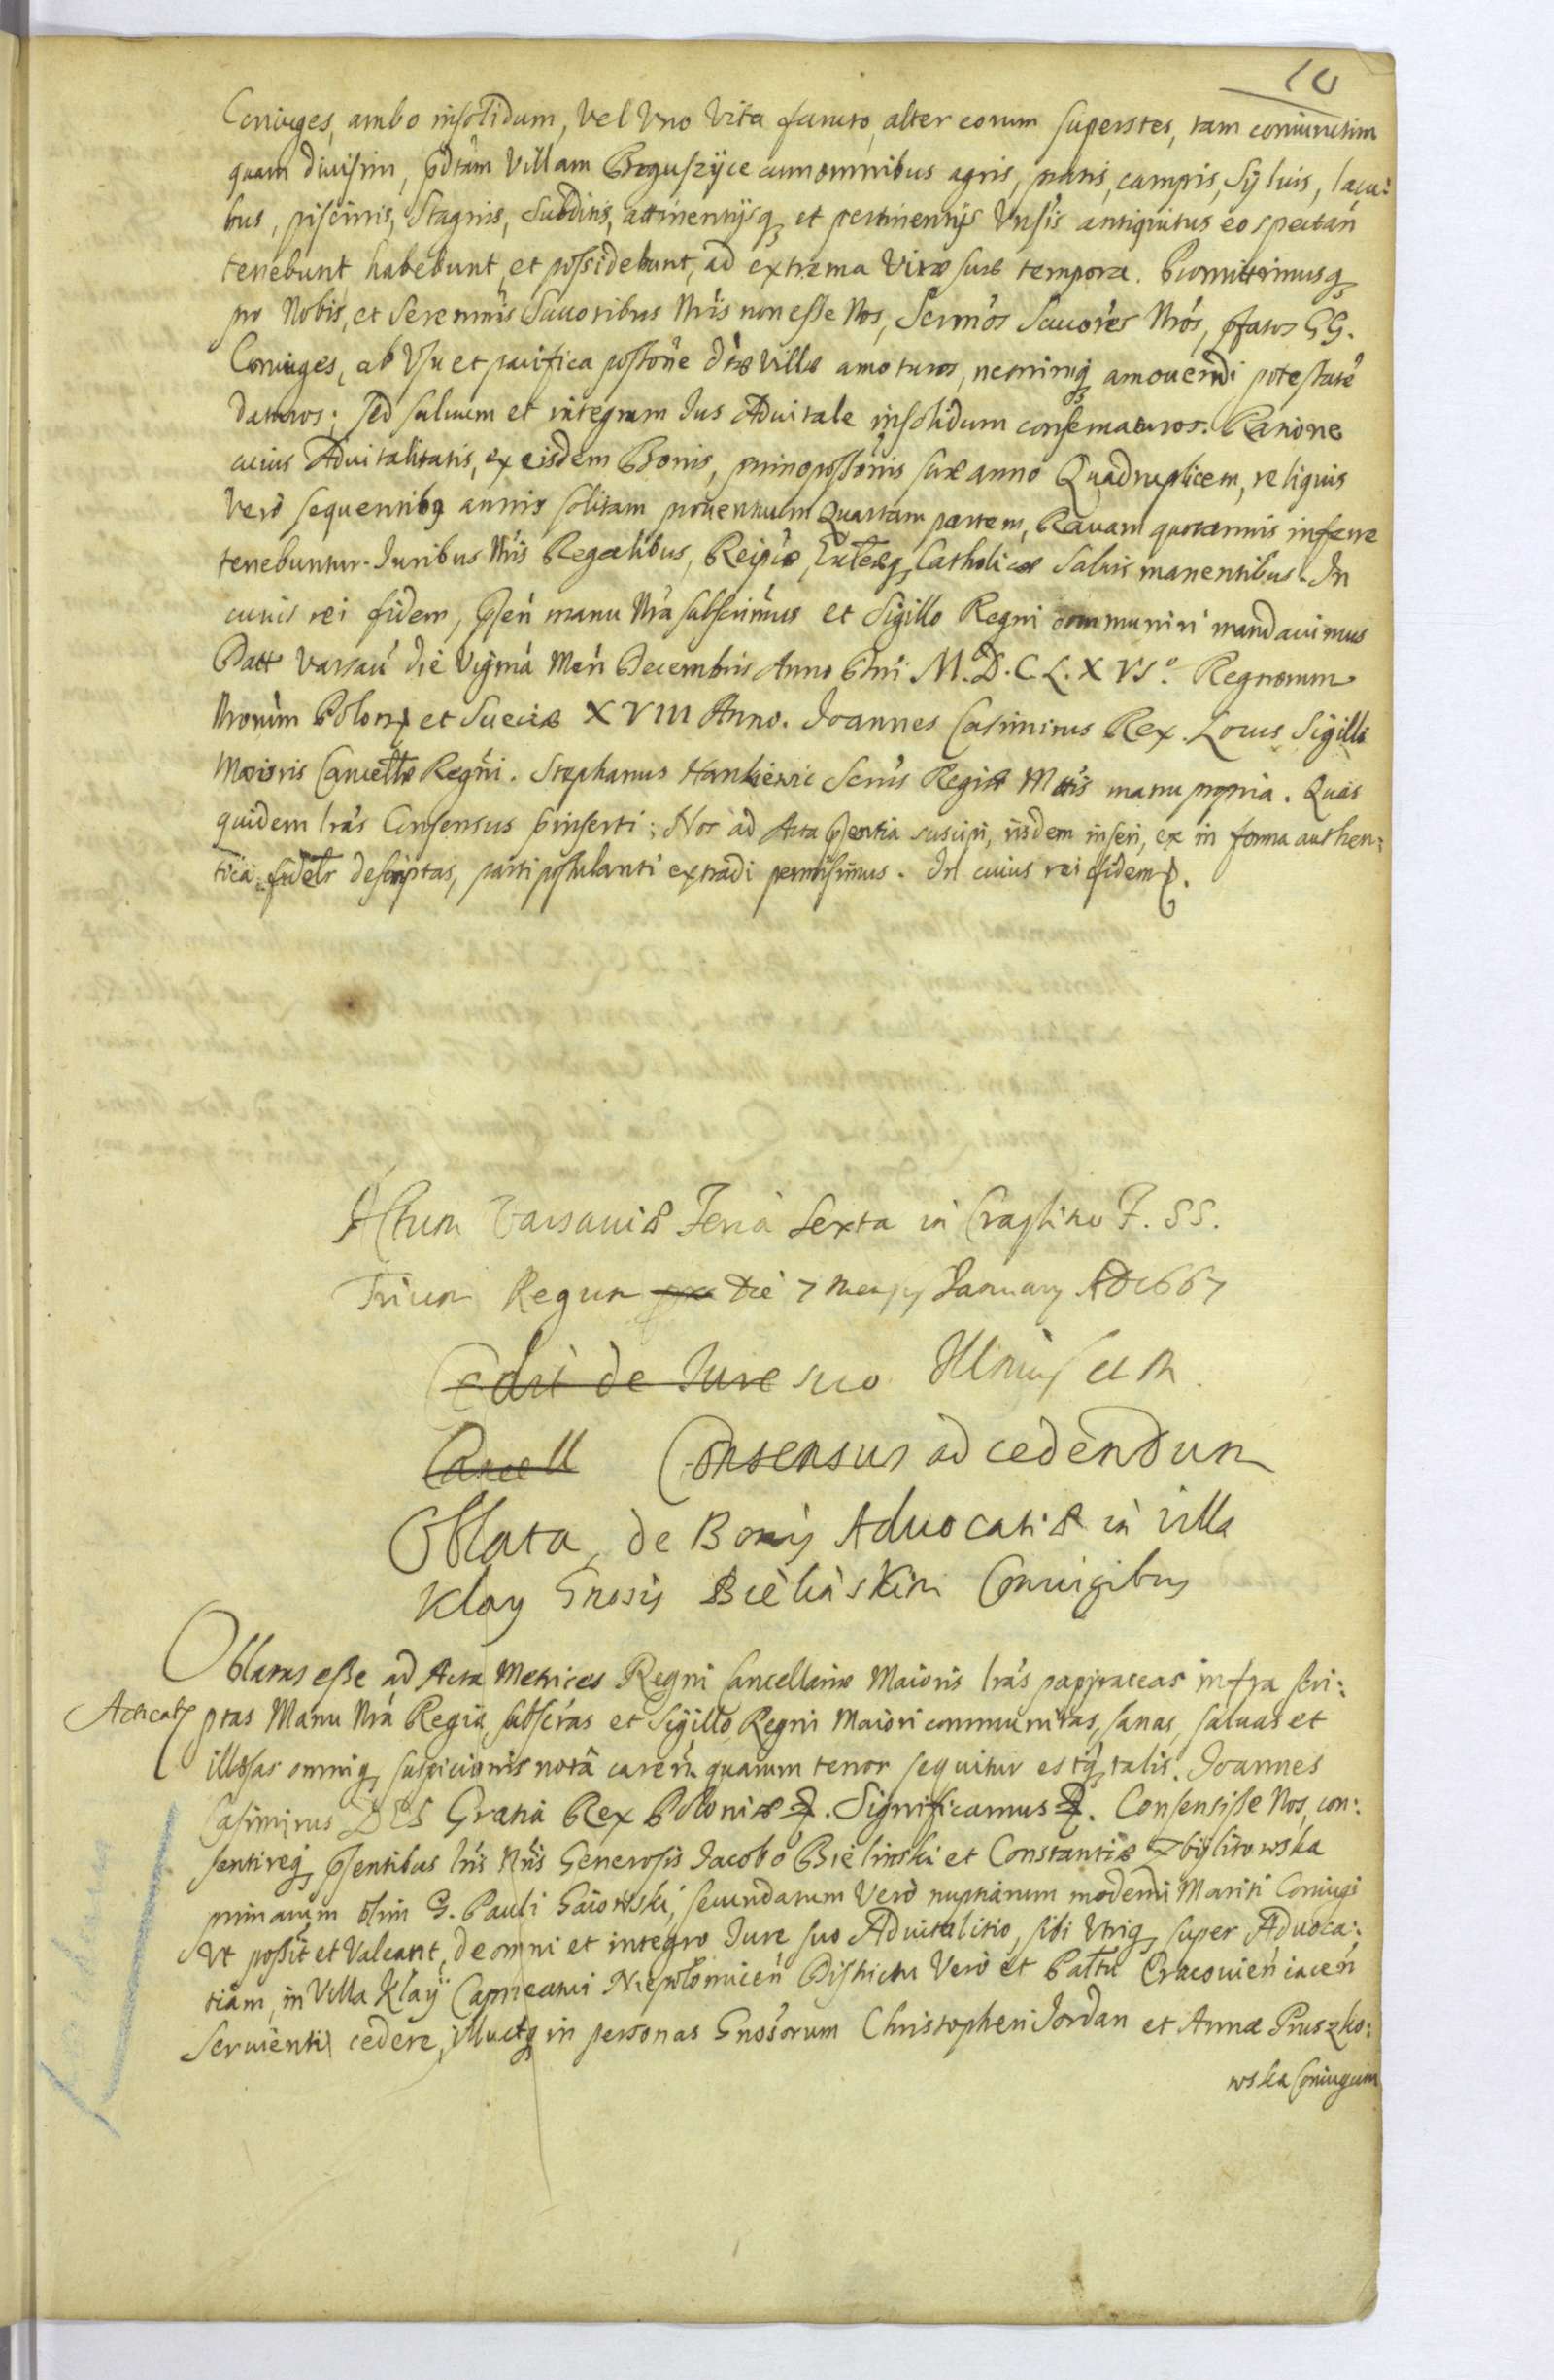 10
Coniuges, ambo insolidum, vel Uno vita functo, alter eorum superstes, tam coniunctim
quam diuisim, pdtam Villam Boguszÿce cum omnibus agris, pratis, campis, Sÿluis, lacu:
bus, piscinis, Stagnis, Subditis, attinentijsq et pertinentijs Unsis antiquitus eo spectan
tenebunt habebunt, et possidebunt, ad extrema Vitæ suæ tempora. Promittimusq
pro Nobis, et Serenmis Succoribus Nris non esse Nos, Sermos Succores Nros, pfatos GG.
Coniuges, ab Usu et pacifica possone dtæ Villæ amoturos, neminiq amouendi potestate
daturos: sed saluum et integrum Ius Aduitale insolidum conseruaturos. Ratione
cuius Aduitalitatis, ex eisdem Bonis, primo possonis suæ anno Quadruplicem, reliquis
Vero sequentibq annis solitam prouentuum Quartam partem, Rauam quotannis inferre
tenebuntur. Iuribus Nris Regalibus, Reipcæ, Eccleæq Catholicæ Saluis manentibus. In
cuius rei fidem, psen manu Nra subscrimus et Sigillo Regni communiri mandauimus
Datt Varsau die Vigma Men Decembris Anno Dni M.D.C.L.X VIº. Regnorum
Nrorum Poloniæ et Sueciæ XVIII Anno. Joannes Casimirus Rex. Locus Sigilli
Maioris Cancellæ Regni. Stephanus Hankiewic Secrius Regiæ Mttis manu propria. Quas
quidem lras Consensus pinserti; Nos ad Acta psentia suscipi, iisdem inseri, ex in forma authen:
tica fidelr descriptas, parti postulanti extradi permisimus. In cuius rei fidem.
Actum Varsauiæ Feria Sexta in Crastino F. SS.
Trium Regum die 7 mensis January AD 1667
Cedit de Iure suo
Cancell Consensus ad cedendum
Oblata, de Bonis Aduocatiæ in villa
Klay Gnosis Bielinskim Coniugibus
Oblatas esse ad Acta Metrices Regni Cancellariæ Maioris lras pappraceas infra scri:
Acticatq
ptas Manu Nra Regia, subscras et Sigillo Regni Maiori communitas, sanas, saluas et
illæsas omniq suspicionis nota caren quarum tenor sequitur estq talis. Joannes
Casimirus DEI Gratia Rex Poloniæ. Significamus. Consensisse Nos, con:
sentireq psentibus lris Nris Generosis Iacobo Bielinski et Constantiæ Zbÿlitowska
primarum olim G. Pauli Gaiowski, secundarum Vero nuptiarum moderni Mariti Coniugi
Vt possit et Valeant, de omni et integro Iure suo Aduitalitio, sibi Utriq super Aduoca:
tiam, in Villa Klaÿ Capitneatui Niepolomicen Districtu Vero et Paltu Cracouien iacen
Seruienti cedere, illudq in personas Gnosorum Christopheri Jordan et Annæ Pruszko:
wska Coniugum